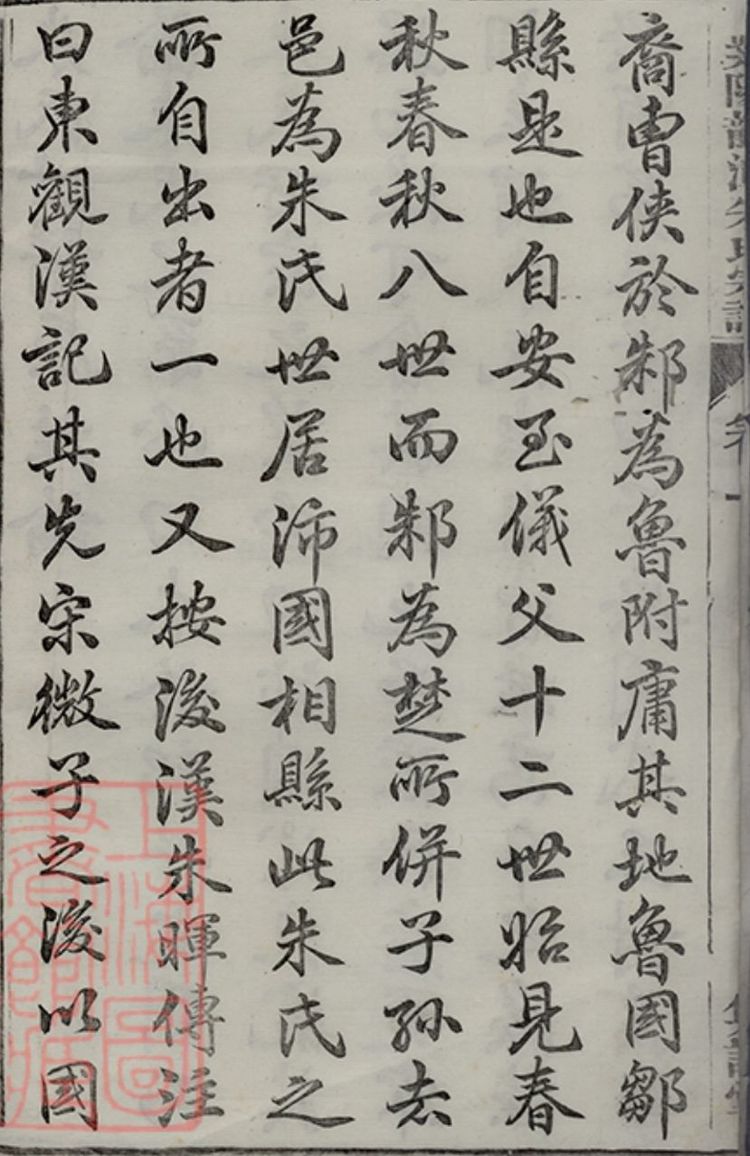 裔曹俠於邾為魯附庸其地魯國鄒
縣是也自安至儀父十二世始見春
秋春秋八世而邾為楚所併子孫去
邑為朱氏世居沛國相縣此朱氏之
所自出者一也又按後漢朱暉傳注
曰東觀漢記其先宋微子之後以國